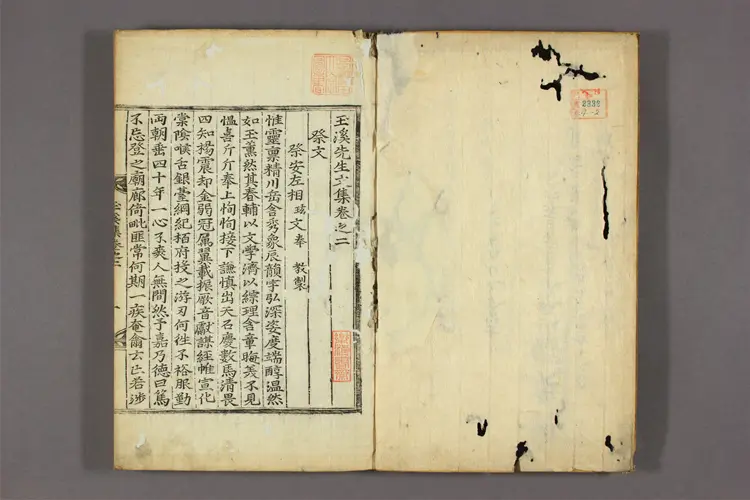 玉溪先生文集卷之二
祭文
祭安左相 玹 文 奉 教製
惟靈稟精川岳含秀象辰韻宇弘深姿度端醇溫然
如玉薰然其春輔以文學濟以綜理含章晦美不見
慍喜斤斤奉上恂恂接下謙愼出天石慶數馬淸畏
四知揚震却金弱冠厲翼載振厥音獻謀經帷宣化
棠陰喉舌銀臺綱紀栢府投之游刃何往不裕服勤
兩朝垂四十年一心不爽人無間然予嘉乃德曰篤
不忘登之廟廊倚毗匪常何期一疾奄龠云亡若涉
2332
2-2